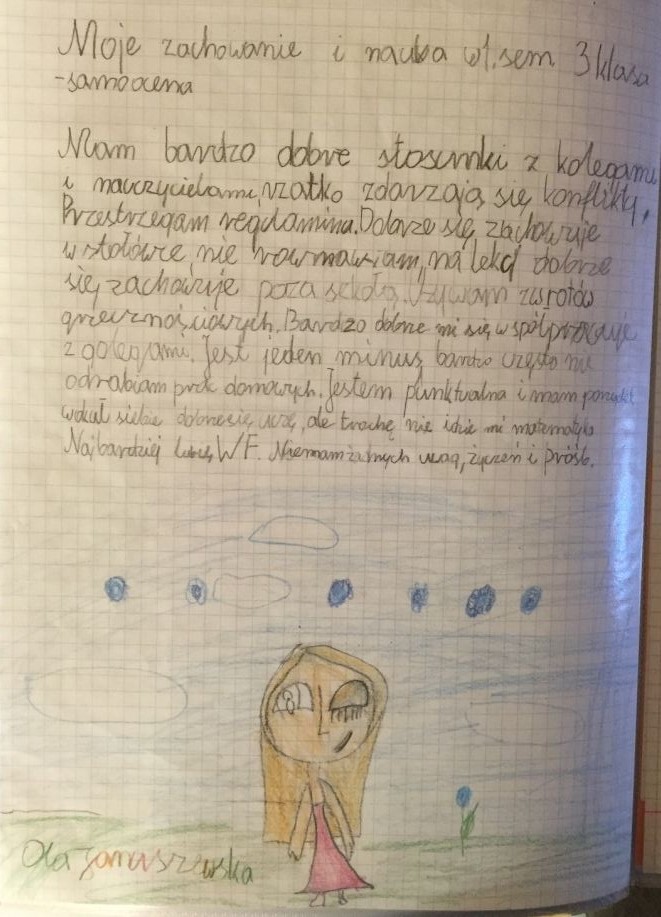 Moje zachowanie i nauka w 1. sem. 3 klasa
-samoocena
Mam bardzo dobre stosunki z kolegami
i nauczycielami, rzatko zdarzają się konflikty.
Przestrzegam regulamina. Dobrze się zachowuje
w stołówce, nie rozmawiam, na lekcj dobrze
się zachowuje poza szkołą. Używam zwrotów
grzecznościowych. Bardzo dobrze mi się współpracuje
z golegami. Jest jeden minus bardzo często nie
odrabiam prac domowych. Jestem punktualna i mam porządek
wokuł siebie dobrze się uczę, ale trochę nie idzie mi matematyka
Najbardziej lubię WF. Niemam żadnych uwag, życzeń i próśb.
Ola Janaszewska